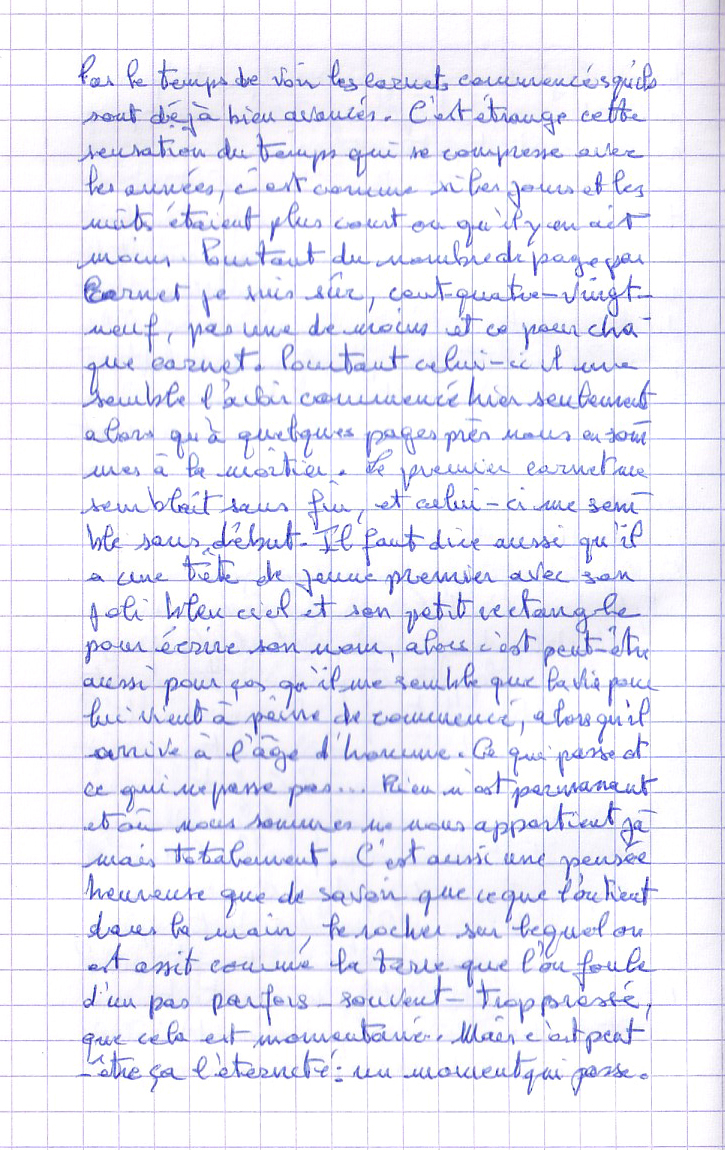 Pas le temps de voir les carnets commencés qu'ils
sont déjà bien avancés. C'est étrange cette
sensation du temps qui se compresse avec
les années, c'est comme si les jours et les
nuits étaient plus court ou qu'il y en ait
moins. Pourtant du nombre de page par
Carnet je suis sûr, cent-quatre-vingt-
neuf, pas une de moins et ce pour cha-
que carnet. Pourtant celui-ci il me
semble l'avoir commencé hier seulement
alors qu'à quelques pages près nous en som-
mes à la moitier. Le premier carnet me
semblait sans fin, et celui-ci me sem-
ble sans début. Il faut dire aussi qu'il
a une tête de jeune premier avec son
joli bleu ciel et son petit rectangle
pour écrire son nom, alors c'est peut-être
aussi pour ças qu'il me semble que la vie pour
lui vient à peine de commencé, alors qu'il
arrive à l'âge d'homme. Ce qui passe et
ce qui ne passe pas... Rien n'est permanant
et où nous sommes ne nous appartient ja-
mais totalement. C'est aussi une pensée
heureuse que de savoir que ce que l'on tient
dans la main, le rocher sur lequel on
est assit comme la terre que l'on foule
d'un pas parfois - souvent - trop pressé,
que cela est momentané. Mais c'est peut
-être ça l'éterneté : un moment qui passe.